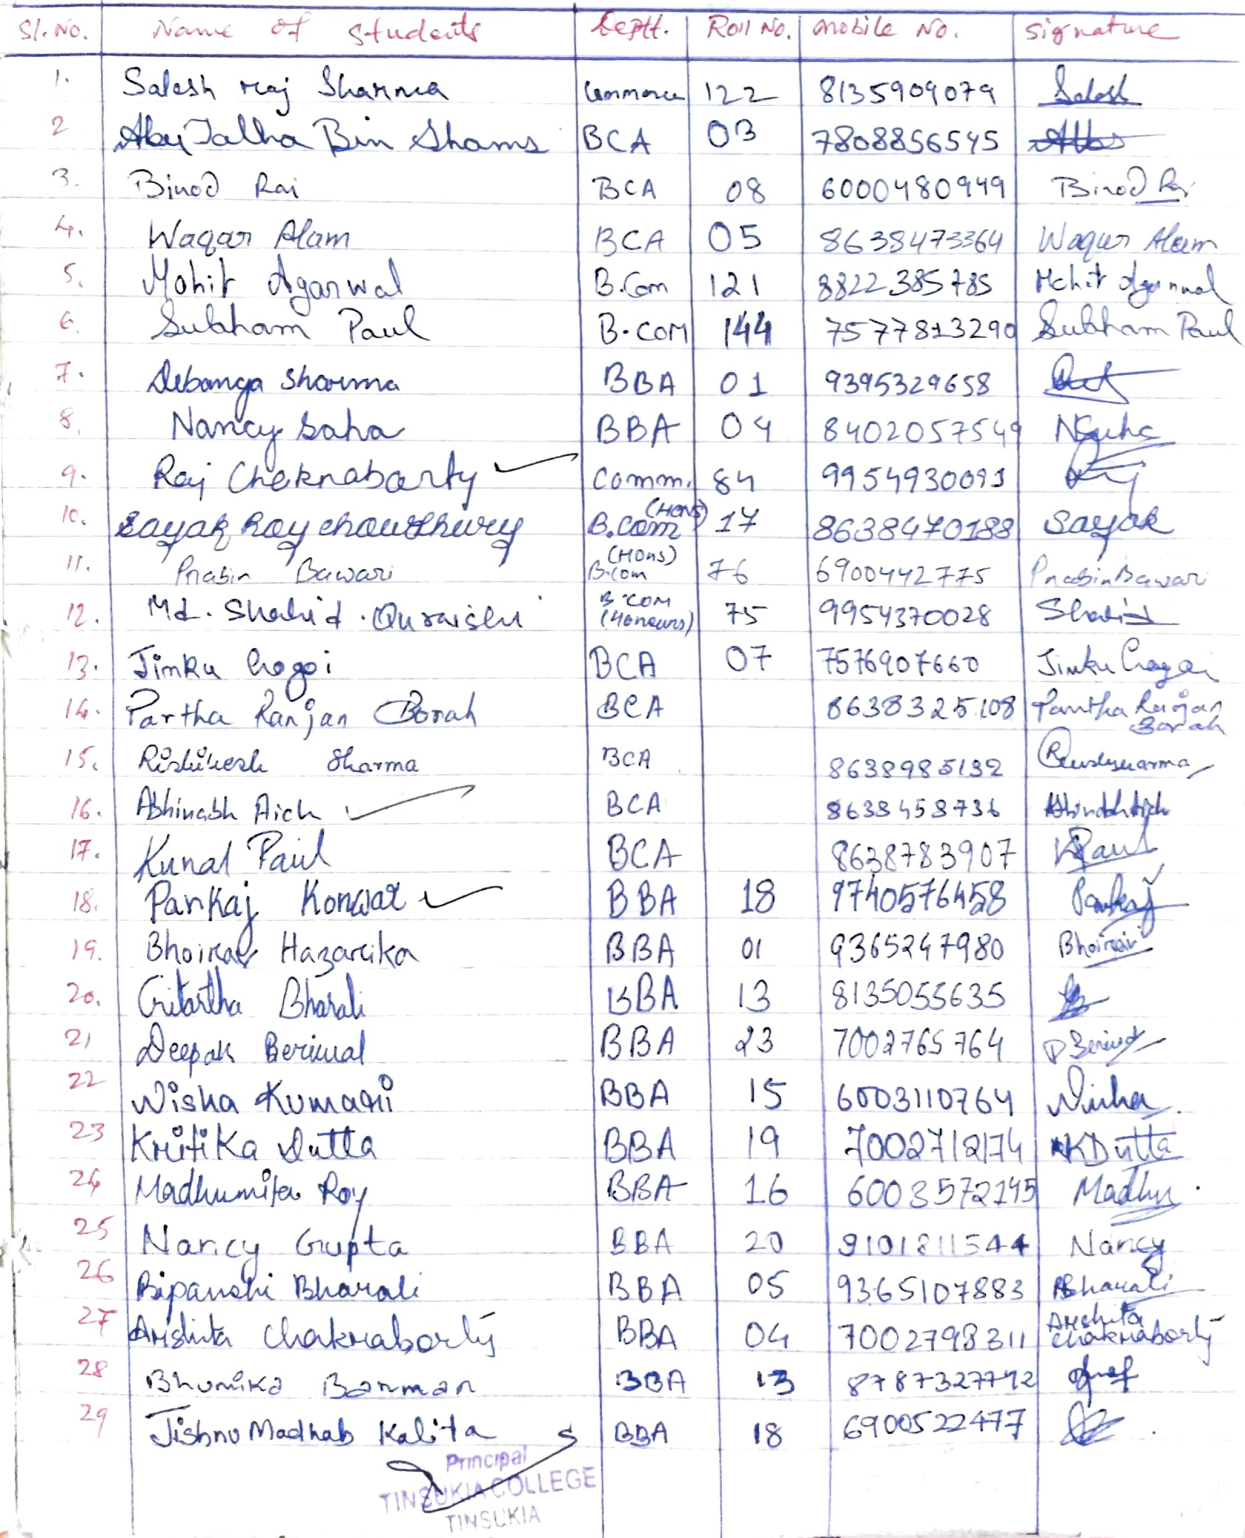 Sl. No. Name of Students Deptt. Roll No. Mobile No. Signature
1. Salesh raj Sharma Commerce 122 8135909079 Salesh
2 Abu Talha Bin Shams BCA 03 7808856545
3. Binod Rai BCA 08 6000480949 Binod Rai
4. Waqar Alam BCA 05 8638473364 Waqar Alam
5. Mohit Agarwal B.Com 121 8822385785 Mohit Agarwal
6. Subham Paul B.COM 144 7577813290 Subham Paul
7. Debanga Sharma BBA 01 9395329658
8. Nancy Saha BBA 04 8402057549 NSaha
9. Raj Cheknabarty Comm. 84 9954930091 Raj
10. Sayak Roy chowdhury B.com (HONS) 17 8638470188 Sayak
11. Prabin Bawari (HOns) B.com 76 6900442775 Prabin Bawari
12. Md. Shahid. Quraishi B.COM (Honours) 75 9954370028 Shahid
13. Jinku Gogoi BCA 07 7576907660 Jinku Gogoi
14. Partha Ranjan Borah BCA 8638325108 Partha Ranjan Borah
15. Rishikesh Sharma BCA 8638985132
16. Abhinabh Aich BCA 8638458736 Abinabh Aich
17. Kunal Paul BCA 8638783907 KPaul
18. Pankaj Konwar BBA 18 9740576458 Pankaj
19. Bhoirav Hazarika BBA 01 9365247980 Bhoirav
20. Critartha Bharali BBA 13 8135055635
21 Deepak Beriwal BBA 23 7002765764 D Beriwal
22 Nisha Kumari BBA 15 6003110764 Nisha
23 Kritika Dutta BBA 19 7002718174 KDutta
24 Madhumita Roy BBA 16 6003572145 Madhu
25 Nancy Gupta BBA 20 9101811544 Nancy
26 Bipanchi Bharali BBA 05 9365107883 Bharali
27 Arshita Chakraborty BBA 04 7002798311 Arshita Chakraborty
28 Bhumika Barman BBA 13 8787327792
29 Jishnu Madhab Kalita BBA 18 6900522477
Principal
TINSUKIA COLLEGE
TINSUKIA